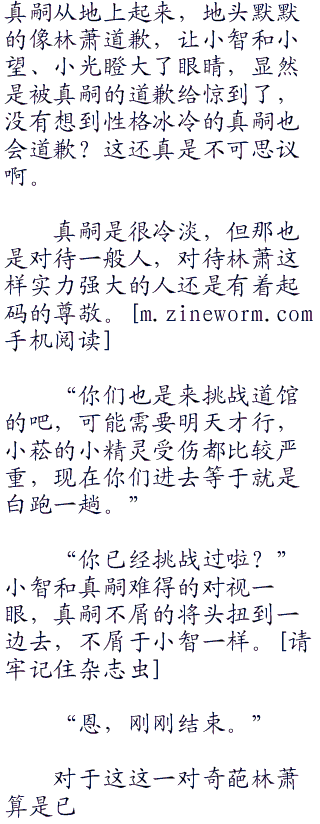 真嗣从地上起来，地头默默
的像林萧道歉，让小智和小
望、小光瞪大了眼睛，显然
是被真嗣的道歉给惊到了，
没有想到性格冰冷的真嗣也
会道歉？这还真是不可思议
啊。
真嗣是很冷淡，但那也
是对待一般人，对待林萧这
样实力强大的人还是有着起
码的尊敬。[m.zineworm.com
手机阅读]
“你们也是来挑战道馆
的吧，可能需要明天才行，
小菘的小精灵受伤都比较严
重，现在你们进去等于就是
白跑一趟。”
“你已经挑战过啦？”
小智和真嗣难得的对视一
眼，真嗣不屑的将头扭到一
边去，不屑于小智一样。[请
牢记住杂志虫]
“恩，刚刚结束。”
对于这这一对奇葩林萧
算是已